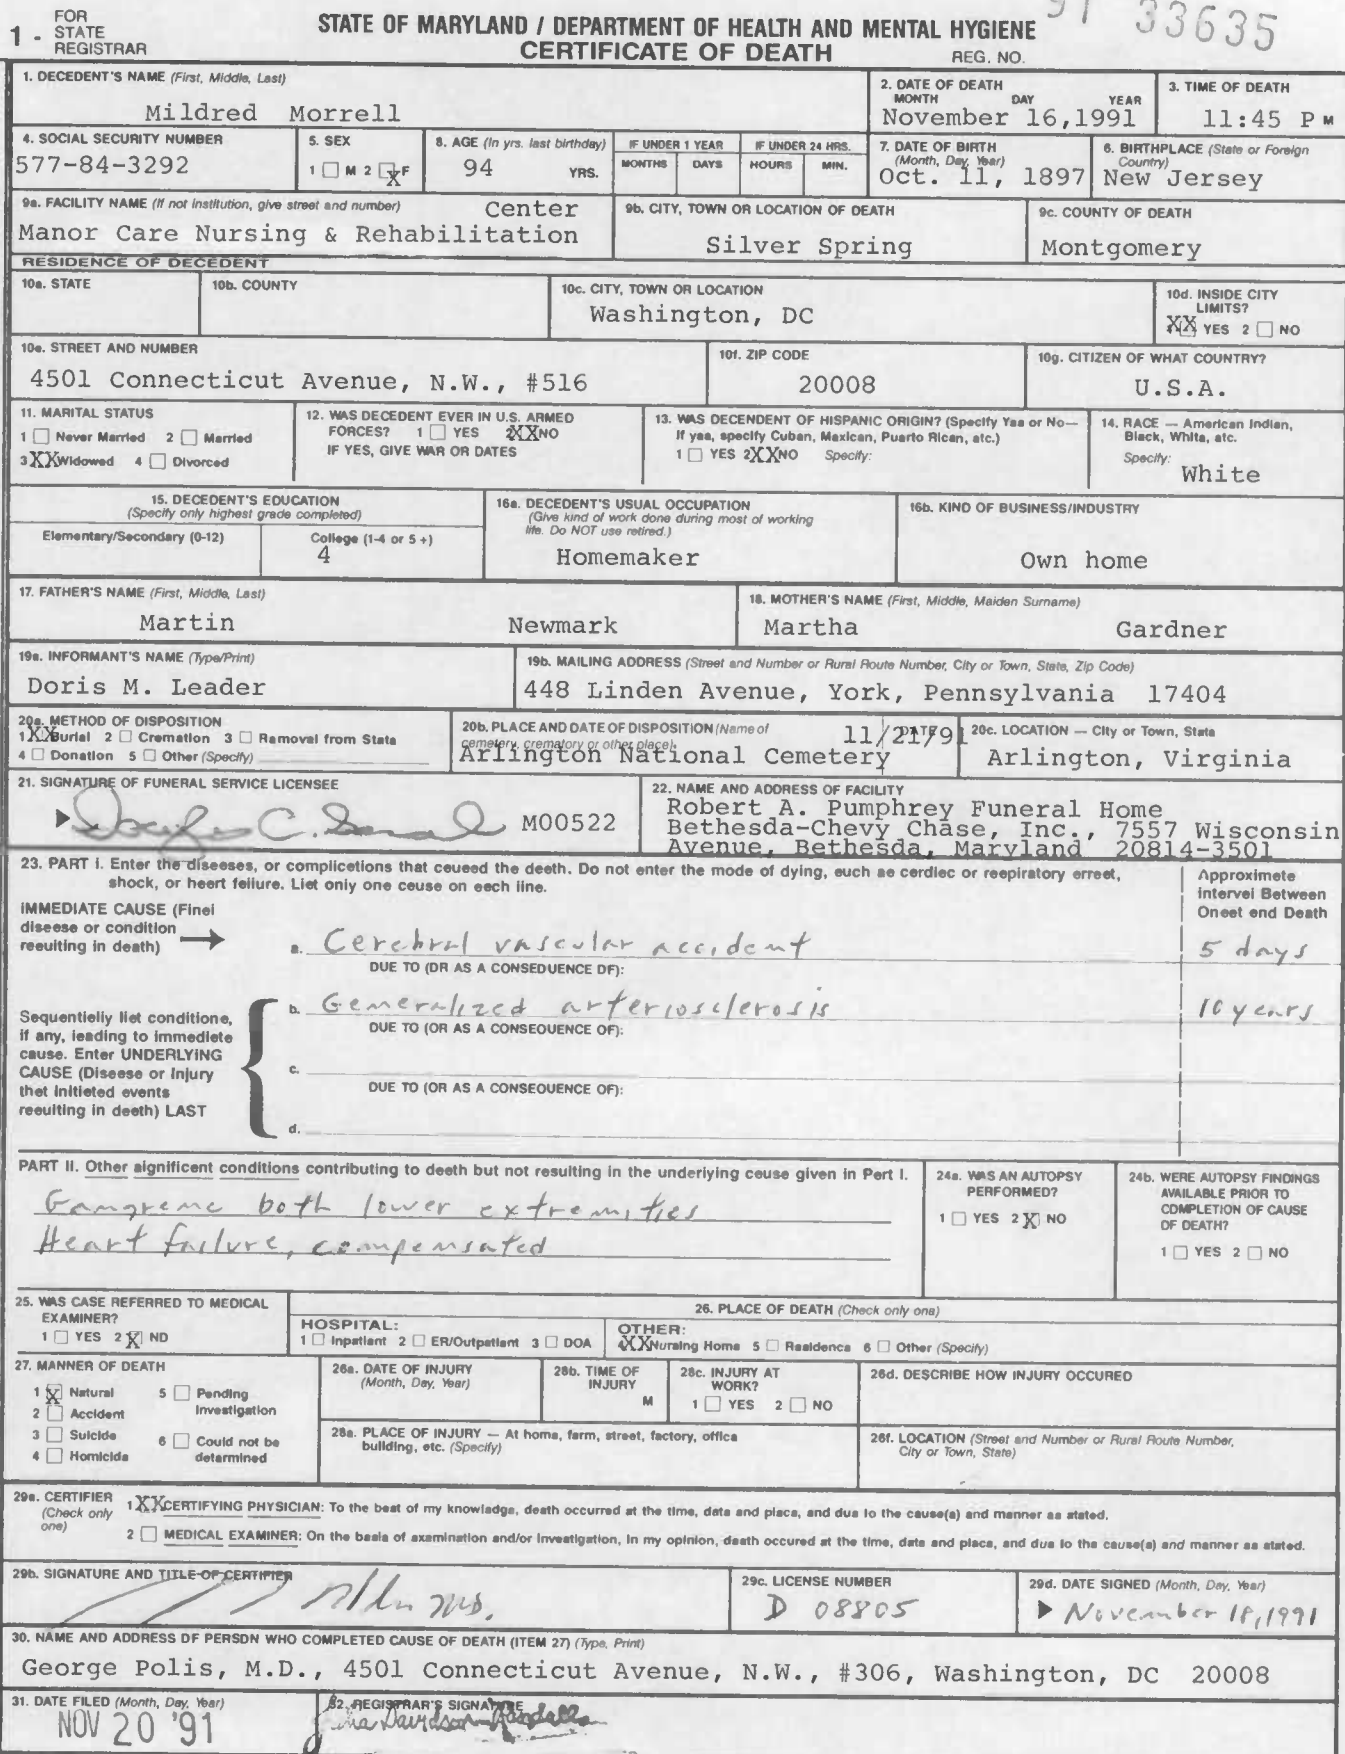 1 - FOR STATE REGISTRAR
STATE OF MARYLAND / DEPARTMENT OF HEALTH AND MENTAL HYGIENE
CERTIFICATE OF DEATH
REG. NO.
91 33635
1. DECEDENT'S NAME (First, Middle, Last)
Mildred Morrell
2. DATE OF DEATH
MONTH DAY YEAR
November 16,1991
3. TIME OF DEATH
11:45 P M
4. SOCIAL SECURITY NUMBER
577-84-3292
5. SEX
1 M 2 X F
8. AGE (In yrs. last birthday)
94 YRS.
IF UNDER 1 YEAR
MONTHS DAYS
IF UNDER 24 HRS.
HOURS MIN.
7. DATE OF BIRTH
(Month, Day, Year)
Oct. 11, 1897
6. BIRTHPLACE (State or Foreign Country)
New Jersey
9a. FACILITY NAME (If not institution, give street and number)
Center
Manor Care Nursing & Rehabilitation
9b. CITY, TOWN OR LOCATION OF DEATH
Silver Spring
9c. COUNTY OF DEATH
Montgomery
RESIDENCE OF DECEDENT
10a. STATE
10b. COUNTY
10c. CITY, TOWN OR LOCATION
Washington, DC
10d. INSIDE CITY LIMITS?
XX YES 2 NO
10e. STREET AND NUMBER
4501 Connecticut Avenue, N.W., #516
10f. ZIP CODE
20008
10g. CITIZEN OF WHAT COUNTRY?
U.S.A.
11. MARITAL STATUS
1 Never Married 2 Married
3 XX Widowed 4 Divorced
12. WAS DECEDENT EVER IN U.S. ARMED
FORCES? 1 YES 2XX NO
IF YES, GIVE WAR OR DATES
13. WAS DECENDENT OF HISPANIC ORIGIN? (Specify Yes or No—
If yes, specify Cuban, Mexican, Puerto Rican, etc.)
1 YES 2XX NO Specify:
14. RACE — American Indian,
Black, White, etc.
Specify:
White
15. DECEDENT'S EDUCATION
(Specify only highest grade completed)
Elementary/Secondary (0-12)
College (1-4 or 5 +)
4
16a. DECEDENT'S USUAL OCCUPATION
(Give kind of work done during most of working
life. Do NOT use retired.)
Homemaker
16b. KIND OF BUSINESS/INDUSTRY
Own home
17. FATHER'S NAME (First, Middle, Last)
Martin Newmark
18. MOTHER'S NAME (First, Middle, Maiden Surname)
Martha Gardner
19a. INFORMANT'S NAME (Type/Print)
Doris M. Leader
19b. MAILING ADDRESS (Street and Number or Rural Route Number, City or Town, State, Zip Code)
448 Linden Avenue, York, Pennsylvania 17404
20a. METHOD OF DISPOSITION
1XX Burial 2 Cremation 3 Removal from State
4 Donation 5 Other (Specify)
20b. PLACE AND DATE OF DISPOSITION (Name of
cemetery, crematory or other place)
11/21/91
Arlington National Cemetery
20c. LOCATION — City or Town, State
Arlington, Virginia
21. SIGNATURE OF FUNERAL SERVICE LICENSEE
M00522
22. NAME AND ADDRESS OF FACILITY
Robert A. Pumphrey Funeral Home
Bethesda-Chevy Chase, Inc., 7557 Wisconsin
Avenue, Bethesda, Maryland 20814-3501
23. PART I. Enter the diseases, or complications that caused the death. Do not enter the mode of dying, such as cardiac or respiratory arrest,
shock, or heart failure. List only one cause on each line.
Approximate
Interval Between
Onset and Death
IMMEDIATE CAUSE (Final
disease or condition
resulting in death)
a. Cerebral vascular accident
5 days
DUE TO (OR AS A CONSEQUENCE OF):
b. Generalized arteriosclerosis
10 years
DUE TO (OR AS A CONSEQUENCE OF):
Sequentially list conditions,
if any, leading to immediate
cause. Enter UNDERLYING
CAUSE (Disease or injury
that initiated events
resulting in death) LAST
c.
DUE TO (OR AS A CONSEQUENCE OF):
d.
PART II. Other significant conditions contributing to death but not resulting in the underlying cause given in Part I.
Gangrene both lower extremities
Heart failure, compensated
24a. WAS AN AUTOPSY
PERFORMED?
1 YES 2 X NO
24b. WERE AUTOPSY FINDINGS
AVAILABLE PRIOR TO
COMPLETION OF CAUSE
OF DEATH?
1 YES 2 NO
25. WAS CASE REFERRED TO MEDICAL
EXAMINER?
1 YES 2 X NO
26. PLACE OF DEATH (Check only one)
HOSPITAL:
1 Inpatient 2 ER/Outpatient 3 DOA
OTHER:
4XX Nursing Home 5 Residence 6 Other (Specify)
27. MANNER OF DEATH
1 X Natural 5 Pending
2 Accident Investigation
3 Suicide 6 Could not be
4 Homicide determined
28a. DATE OF INJURY
(Month, Day, Year)
28b. TIME OF
INJURY
M
28c. INJURY AT
WORK?
1 YES 2 NO
28d. DESCRIBE HOW INJURY OCCURED
28e. PLACE OF INJURY — At home, farm, street, factory, office
building, etc. (Specify)
28f. LOCATION (Street and Number or Rural Route Number,
City or Town, State)
29a. CERTIFIER
(Check only
one)
1XX CERTIFYING PHYSICIAN: To the best of my knowledge, death occurred at the time, date and place, and due to the cause(s) and manner as stated.
2 MEDICAL EXAMINER: On the basis of examination and/or investigation, in my opinion, death occured at the time, date and place, and due to the cause(s) and manner as stated.
29b. SIGNATURE AND TITLE OF CERTIFIER
MD.
29c. LICENSE NUMBER
D 08805
29d. DATE SIGNED (Month, Day, Year)
November 18, 1991
30. NAME AND ADDRESS OF PERSON WHO COMPLETED CAUSE OF DEATH (ITEM 27) (Type, Print)
George Polis, M.D., 4501 Connecticut Avenue, N.W., #306, Washington, DC 20008
31. DATE FILED (Month, Day, Year)
NOV 20 '91
32. REGISTRAR'S SIGNATURE
Davidson-Randall